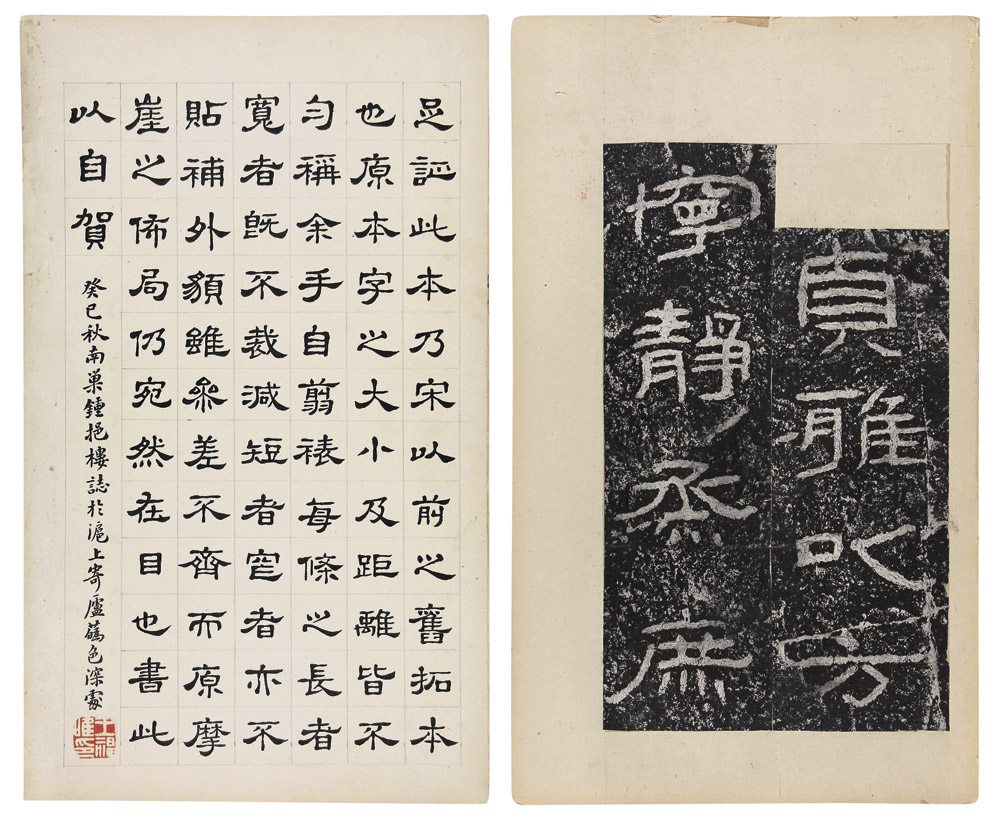 貞雅以方
寧靜烝庶
足証此本乃宋以前之舊拓本
也原本字之大小及距離皆不
勻稱余手自翦裱每條之長者
寬者既不裁減短者窄者亦不
貼補外貌雖參差不齊而原摩
崖之佈局仍宛然在目也書此
以自賀 癸巳秋南巢鍾挹樓誌於滬上寄廬色深處